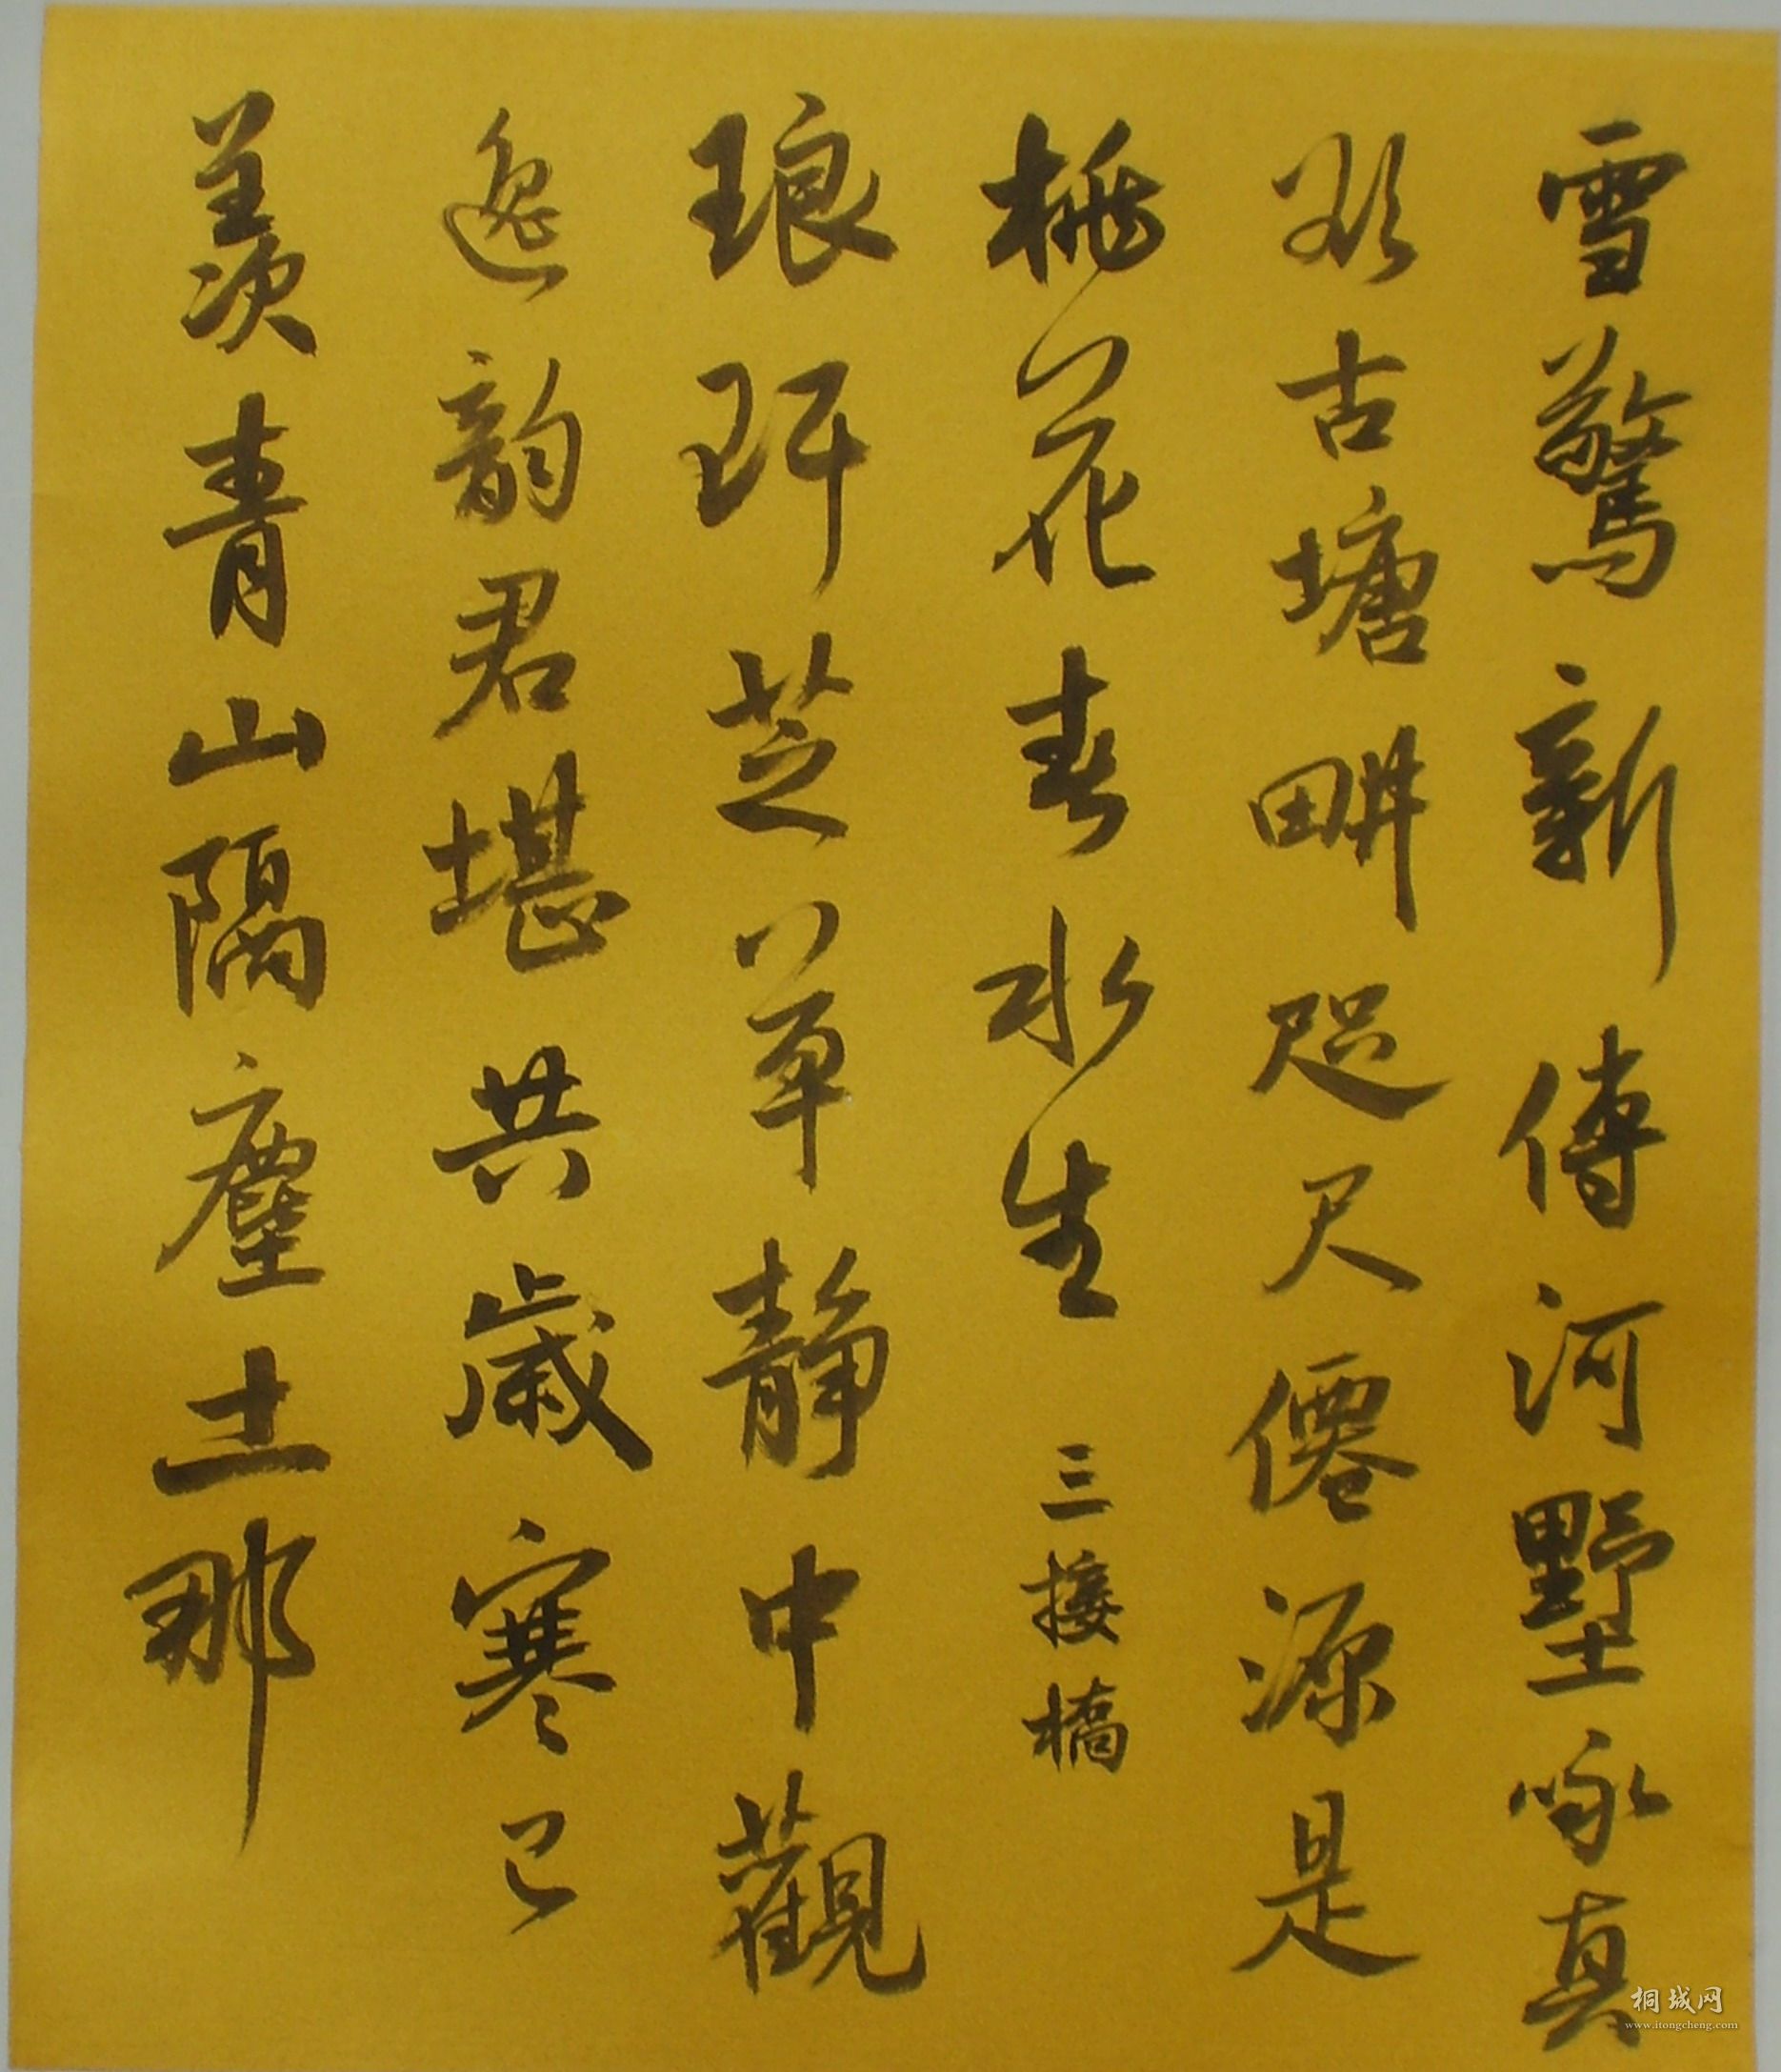 雪驚新傳河墅咏真
欲古塘畊咫尺僊源是
桃花春水生 三接橋
琅玕芝草静中觀
逸韵君堪共歲寒已
羡青山隔塵土那
桐城网
www.itongcheng.com